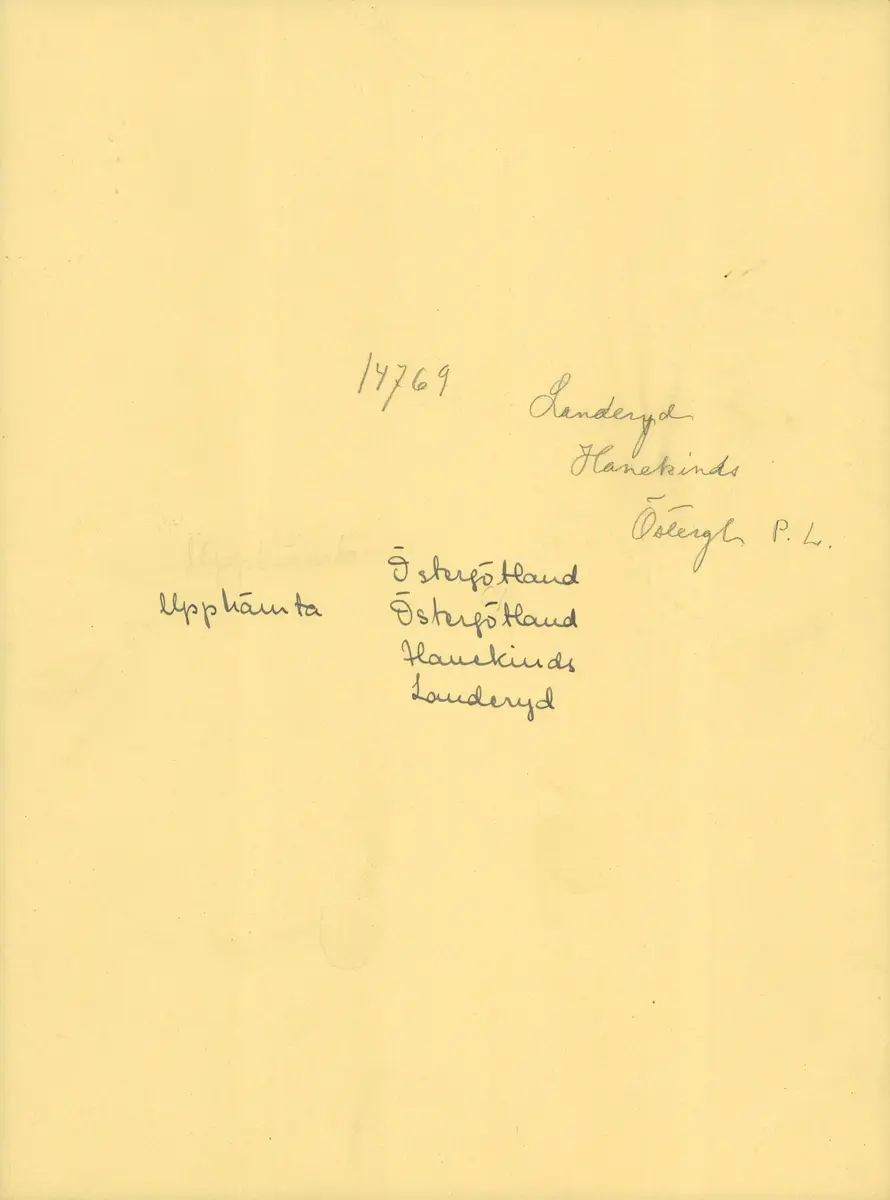 14769
Landeryd
Hanekinds
Östergl. P. L.
Östergötland
Upphämta Östergötland
Hanekinds
Landeryd